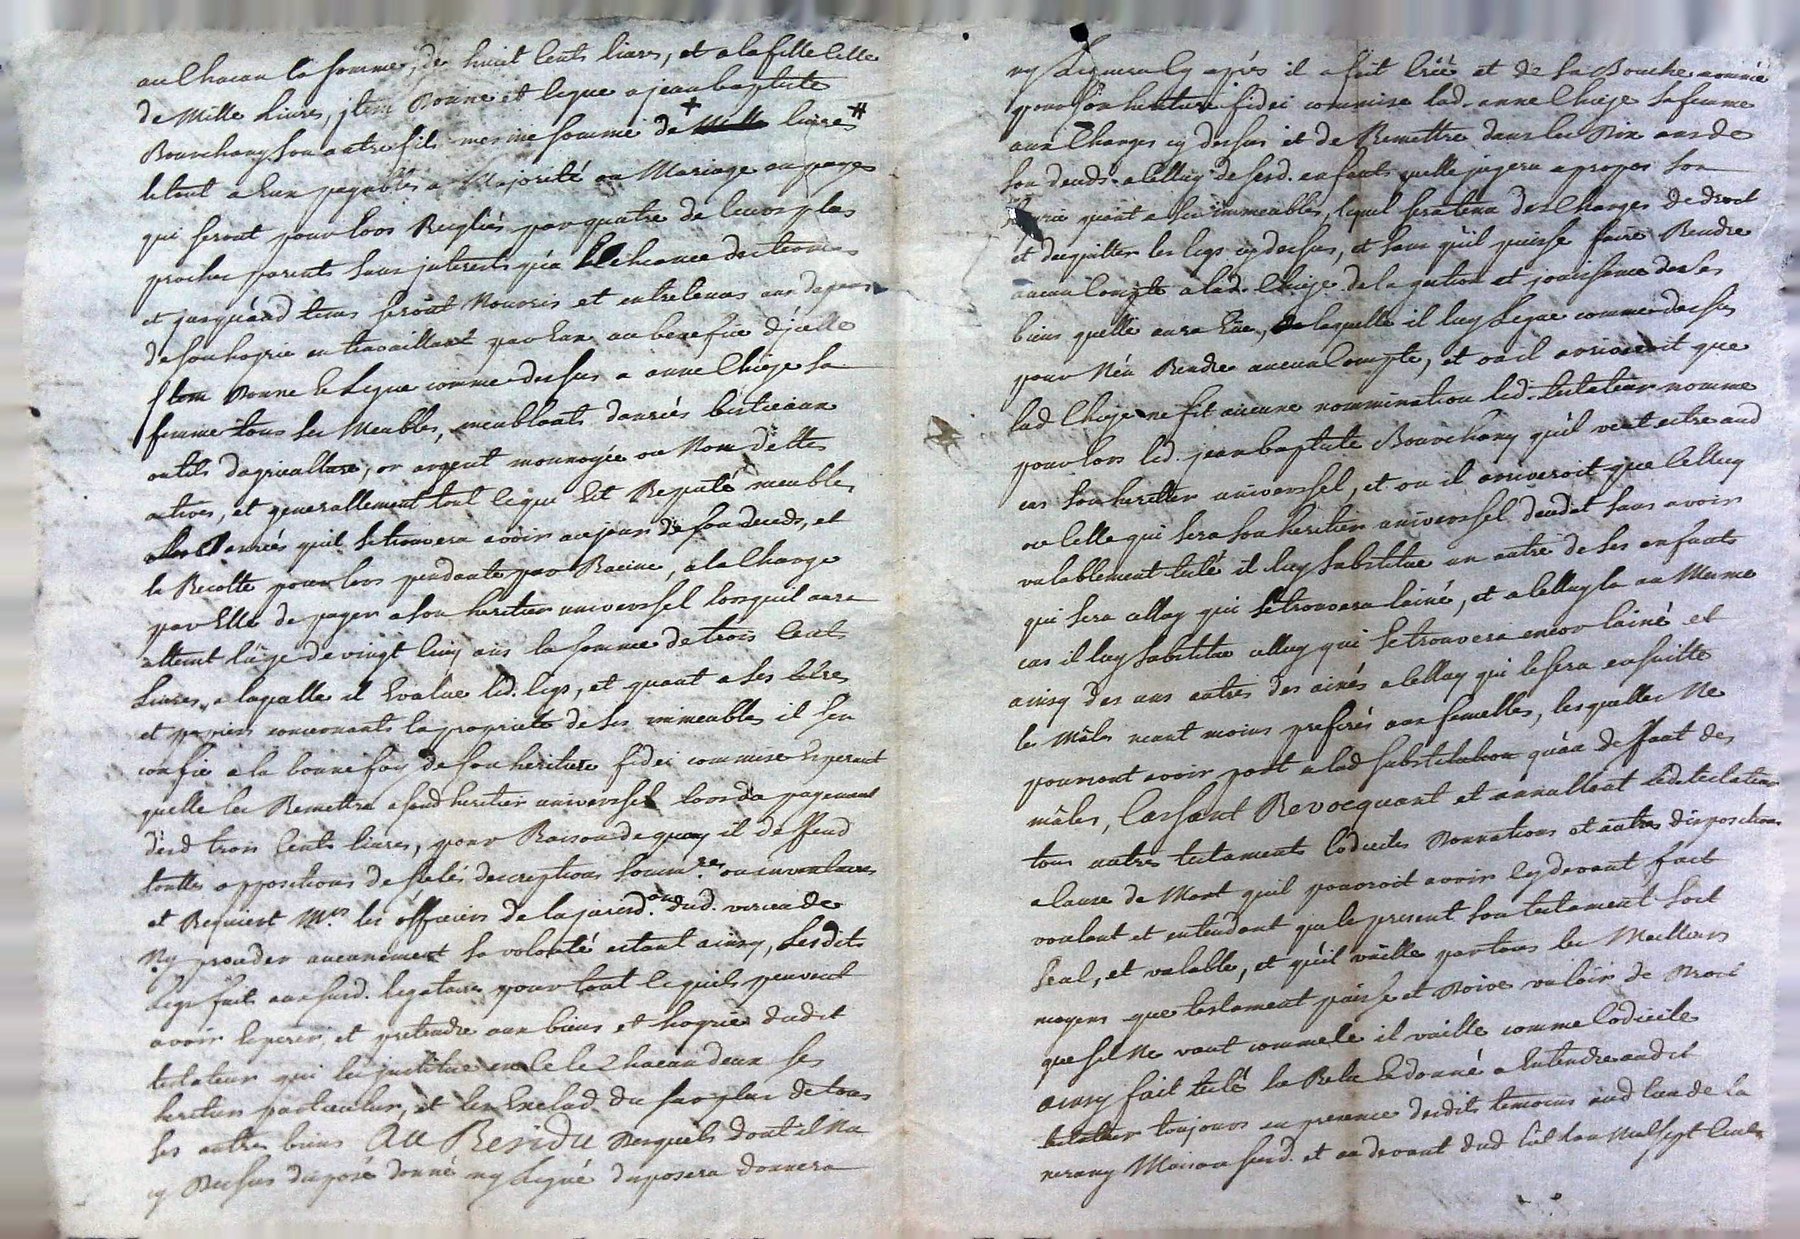 au Chacun la somme de huit Cents livres, et a la fille Celle
de Mille livres, jtem Donne et legue a jean baptiste
Bourchany son autre fils mesme somme de + Mille livres #
le tout a Eux payables a Majorité ou Mariage aux pages
qui seront pour Lors Reiglés par quatre de leurs plus
proches parents sans jnterests qu'a Echeance des termes
et jusqu'aud tems seront Nourris et entretenus aux depens
de son hoyrie en travaillant par Eux au benefice d'jcelle
jtem Donne et Legue comme dessus a anne Chieze sa
femme tous ses Meubles, meublants danrées bestieaux
outils dagriculture, or argent monnoyée ou Non debtes
actives, et generallement tout ce que Est Reputé meubles
danrées qu'il se trouvera avoir au jour de son deceds, et
la Recolte pour lors pendante par Racine, a la Charge
par Elle de payer a son heritier universsel lorsquil aura
atteint lâge de vingt Cinq ans la somme de trois Cents
Livres, a laquelle il Evalue led. legs, et quant a ses titres
et papiers concernants la proprieté de ses immeubles il s'en
confie a la bonne foy de son heritiere fidei commise Esperant
quelle les Remettra a sond heritier universsel lors du payement
desd trois Cents livres, pour Raison de quoy il deffend
touttes oppositions de scelés descriptions somm.res ou inventaires
et Requiert Mrs. les officiers de la jurisd.on dud.
Ny proceder aucunement sa volonté estant ainsy, Lesdits
legs faits aux susd. legataires pour tout ce quils peuvent
avoir esperer, et pretendre aux biens et hoyrie dudit
testateur qui les jnstitue en ce le Chacun deux ses
heritiers particuliers, et les Exclud du surplus de tous
ses autres biens Au Residu Desquels dont il Na
cy Dessus disposé donné ny Legué disposera donnera
ny Leguera Cy après il a fait Créé et de sa Bouche nommé
pour son heritiere fidei commise lad. anne Chieze sa femme
aux Charges cy dessus et de Remettre dans les Dix ans de
son deceds a Celluy de sesd. enfants quelle jugera a propos son
hoyrie quant a ses immeubles, lequel sera tenu des Charges de droit
et dacquitter les legs cy dessus, et sans qu'il puisse faire Rendre
aucun Compte a lad. Chieze de la gestion et jouissance de ses
biens quelle aura Eüe, laquelle il luy Legue comme dessus
pour N'en Rendre aucun Compte, et ou il arriveroit que
lad Chieze ne fit aucune nommination led. testateur nomme
pour lors led. jean baptiste Bourchany qu'il veut estre aud
cas son heritier universsel, et ou il arriveroit que Celluy
ou Celle qui sera son heritier universsel deceda sans avoir
valablement testé il luy substitue un autre de ses enfants
qui sera celluy qui se trouvera lainé, et a celluy la au Mesme
cas il luy substitue celluy qui se trouvera encor lainé et
ainsy des uns autres des ainés a celluy qui le sera ensuitte
les Mâles neant moins preferés aux femelles, lesquelles Ne
pourront avoir part a lad substitution qu'au deffaut des
mâles, Cassant Revocquant et annullant led testateur
tous autres testaments Codiciles Donnations et autres dispositions
a Cause de Mort quil pourroit avoir cy devant fait
voulant et entendant que le present son testament soit
seul, et valable, et qu'il vaille par tous les Meilleurs
moyens que testament puisse et Doive valoir de Droit
que sil Ne vaut comme tel il vaille comme Codicile
ainsy fait testé lu Relu et donné a Entendre audit
testateur toujours en presence desdits temoins aud lieu de
Maison susd. et au devant dud Mil sept Cents